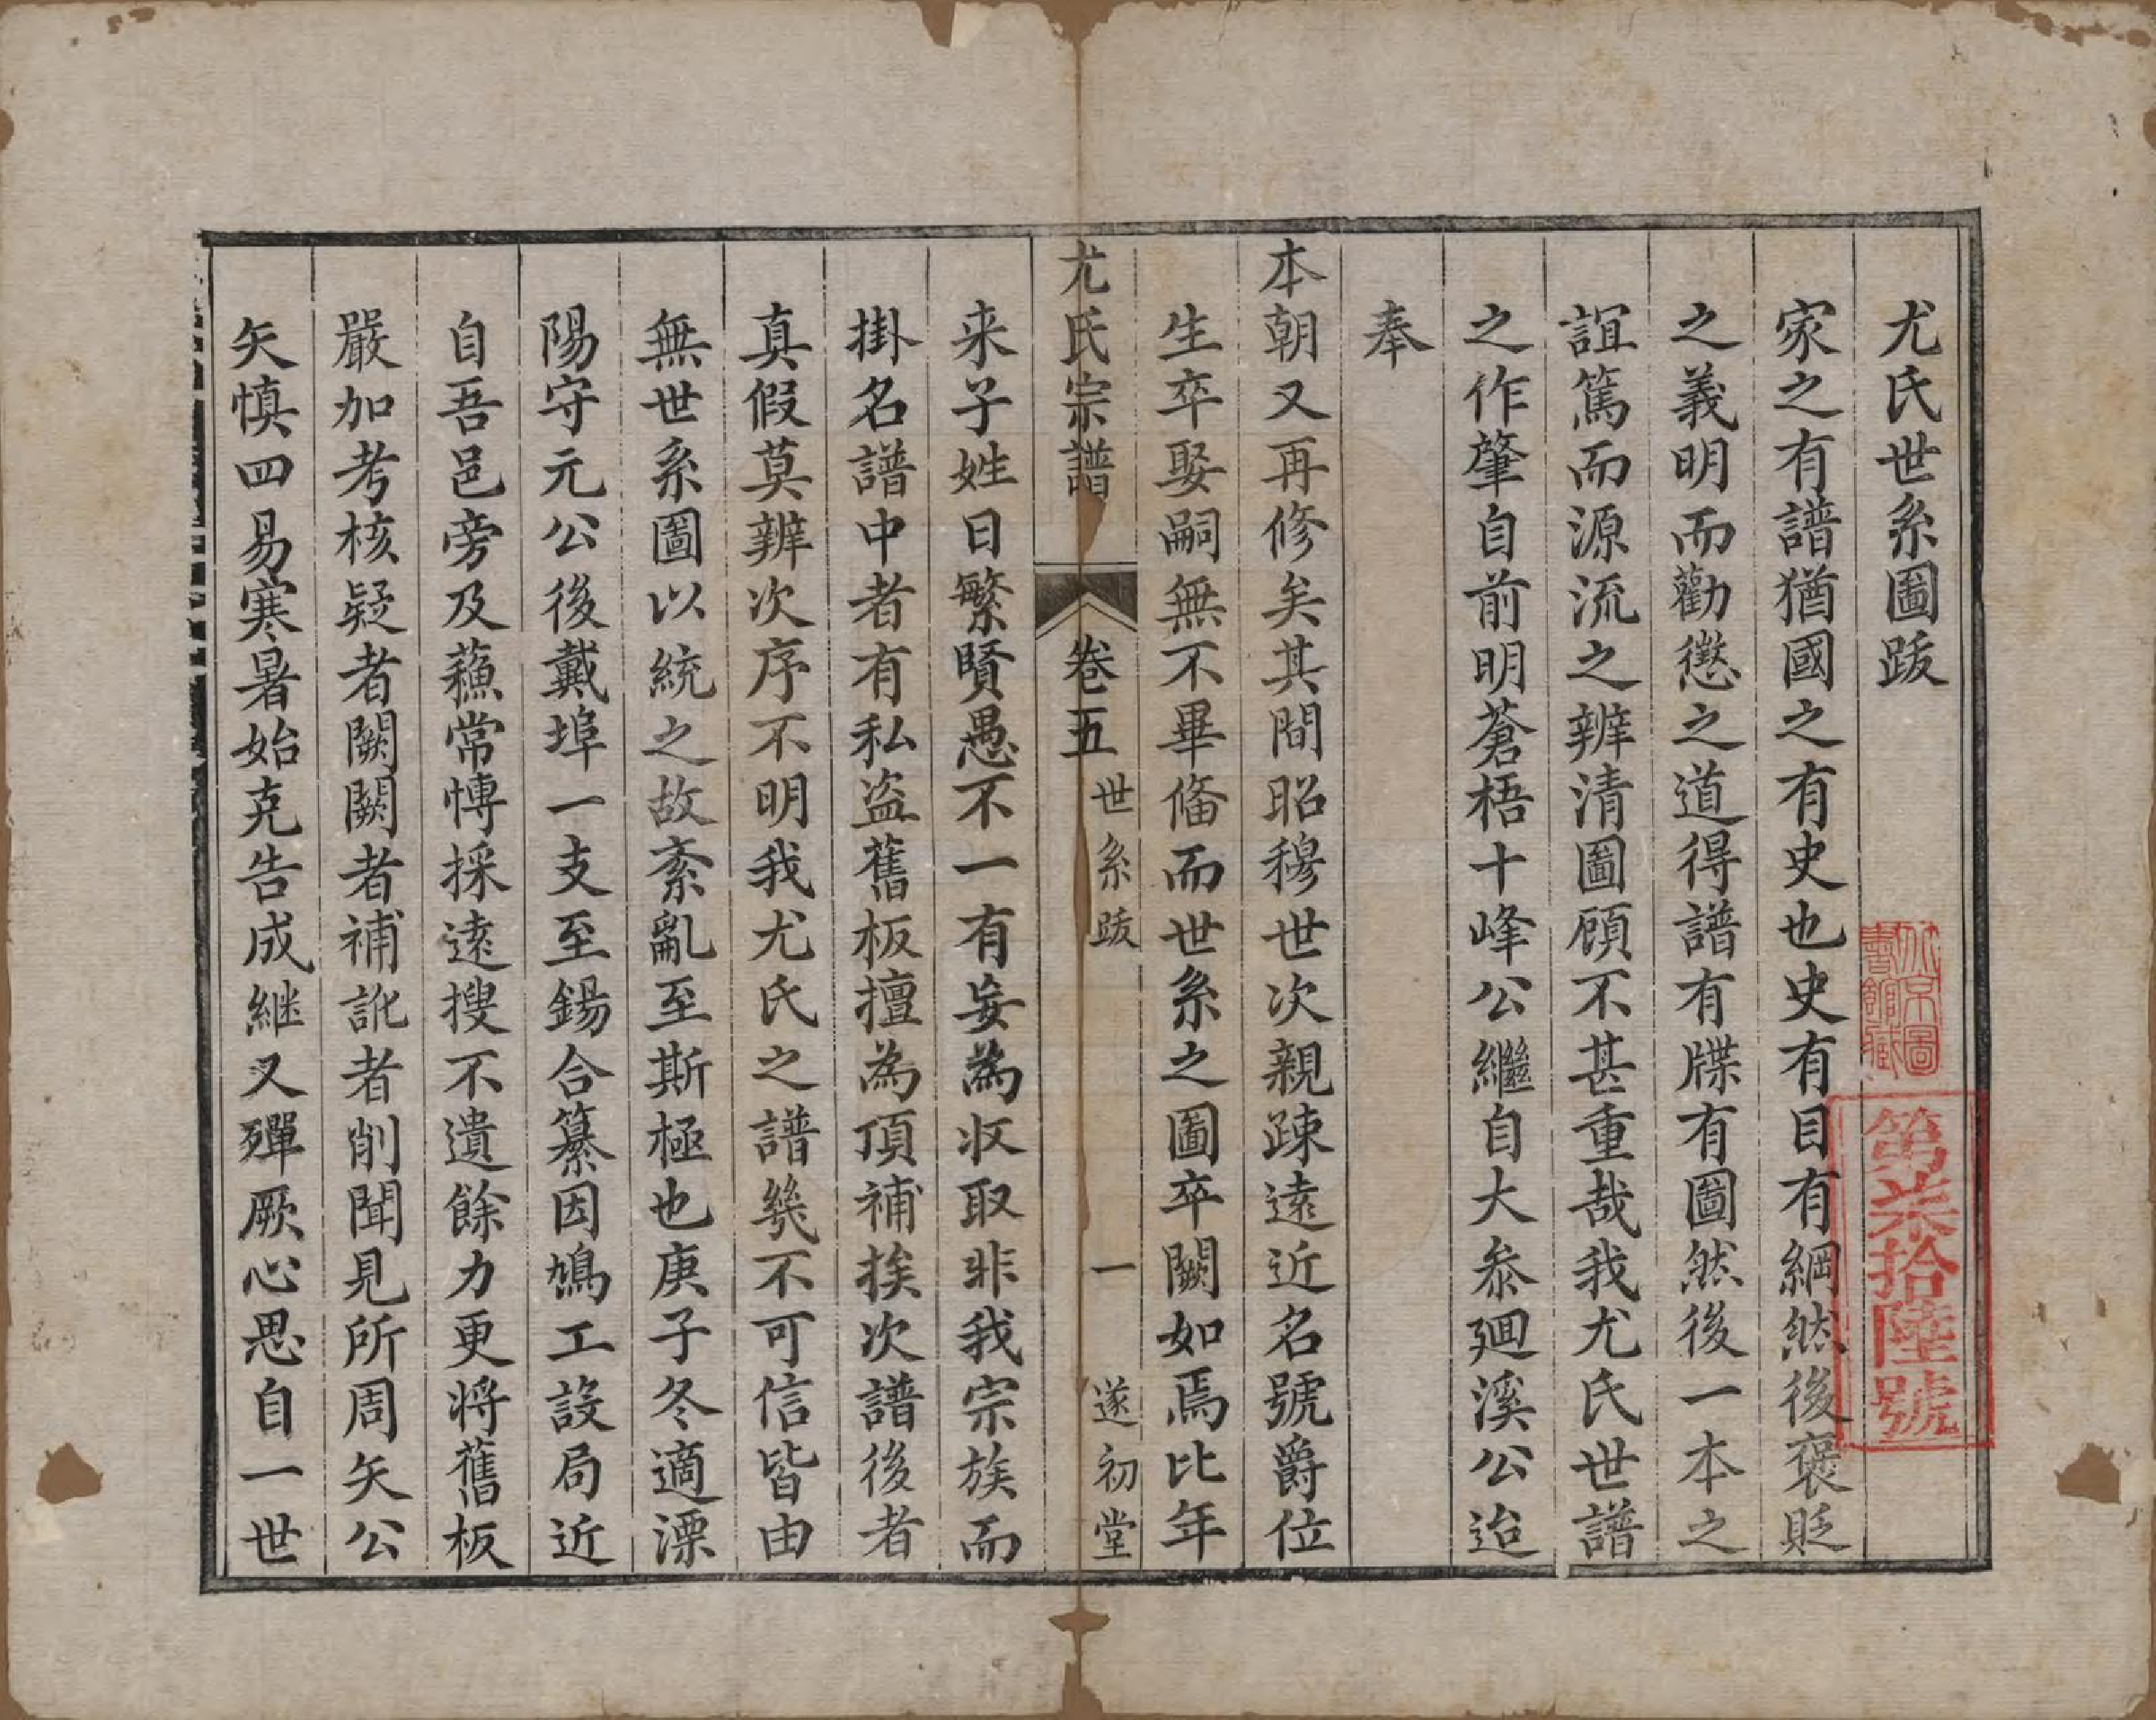 尤氏世系圖跋
家之有譜猶國之有史也史有目有綱然後褒貶
之義明而勸懲之道得譜有牒有圖然後一本之
誼篤而源流之辨清圖顧不甚重哉我尤氏世譜
之作肇自前明蒼梧十峰公繼自大叅廻溪公迨
奉
本朝又再修矣其間昭穆世次親疎遠近名號爵位
生卒娶嗣無不畢俻而世系之圖卒闕如焉比年
尤氏宗譜
卷五
世系跋
一
遂初堂
来子姓日繁賢愚不一有妄為収取非我宗族而
掛名譜中者有私盗舊板擅為頂補挨次譜後者
真假莫辨次序不明我尤氏之譜幾不可信皆由
無世系圖以統之故紊亂至斯極也庚子冬適溧
陽守元公後戴埠一支至錫合纂因鳩工設局近
自吾邑旁及蘓常博採遠搜不遺餘力更将舊板
嚴加考核疑者闕闕者補訛者削聞見所周矢公
矢慎四易寒暑始克告成継又殫厥心思自一世
北京圖書館藏
第柒拾陸號